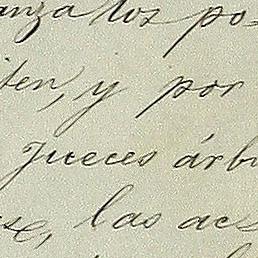 anza los po-
iten, y por
Jueces árbi
se, las acs